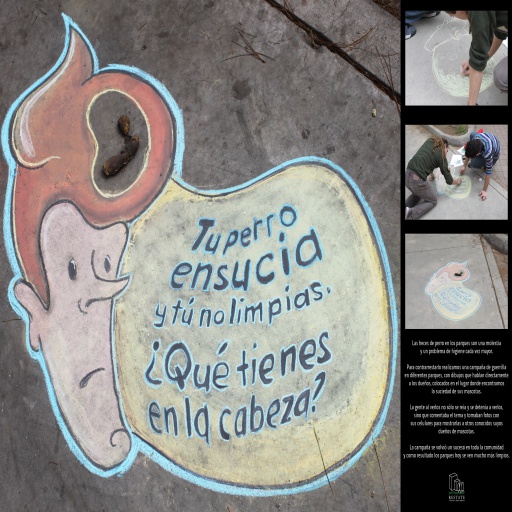 Tu perro
ensucia
y tú no limpias.
¿Qué tienes
en la cabeza?
Las heces de perro en los parques son una molestia
y un problema de higiene cada vez mayor.
Para contrarrestarlo realizamos una campaña de guerrilla
en diferentes parques, con dibujos que hablan directamente
a los dueños, colocados en el lugar donde encontramos
la suciedad de sus mascotas.
La gente al verlos no sólo se reía y se detenía a verlos,
sino que comentaba el tema y tomaban fotos con
sus celulares para mostrarlas a otros conocidos suyos
dueños de mascotas.
La campaña se volvió un suceso en toda la comunidad
y como resultado los parques hoy se ven mucho más limpios.